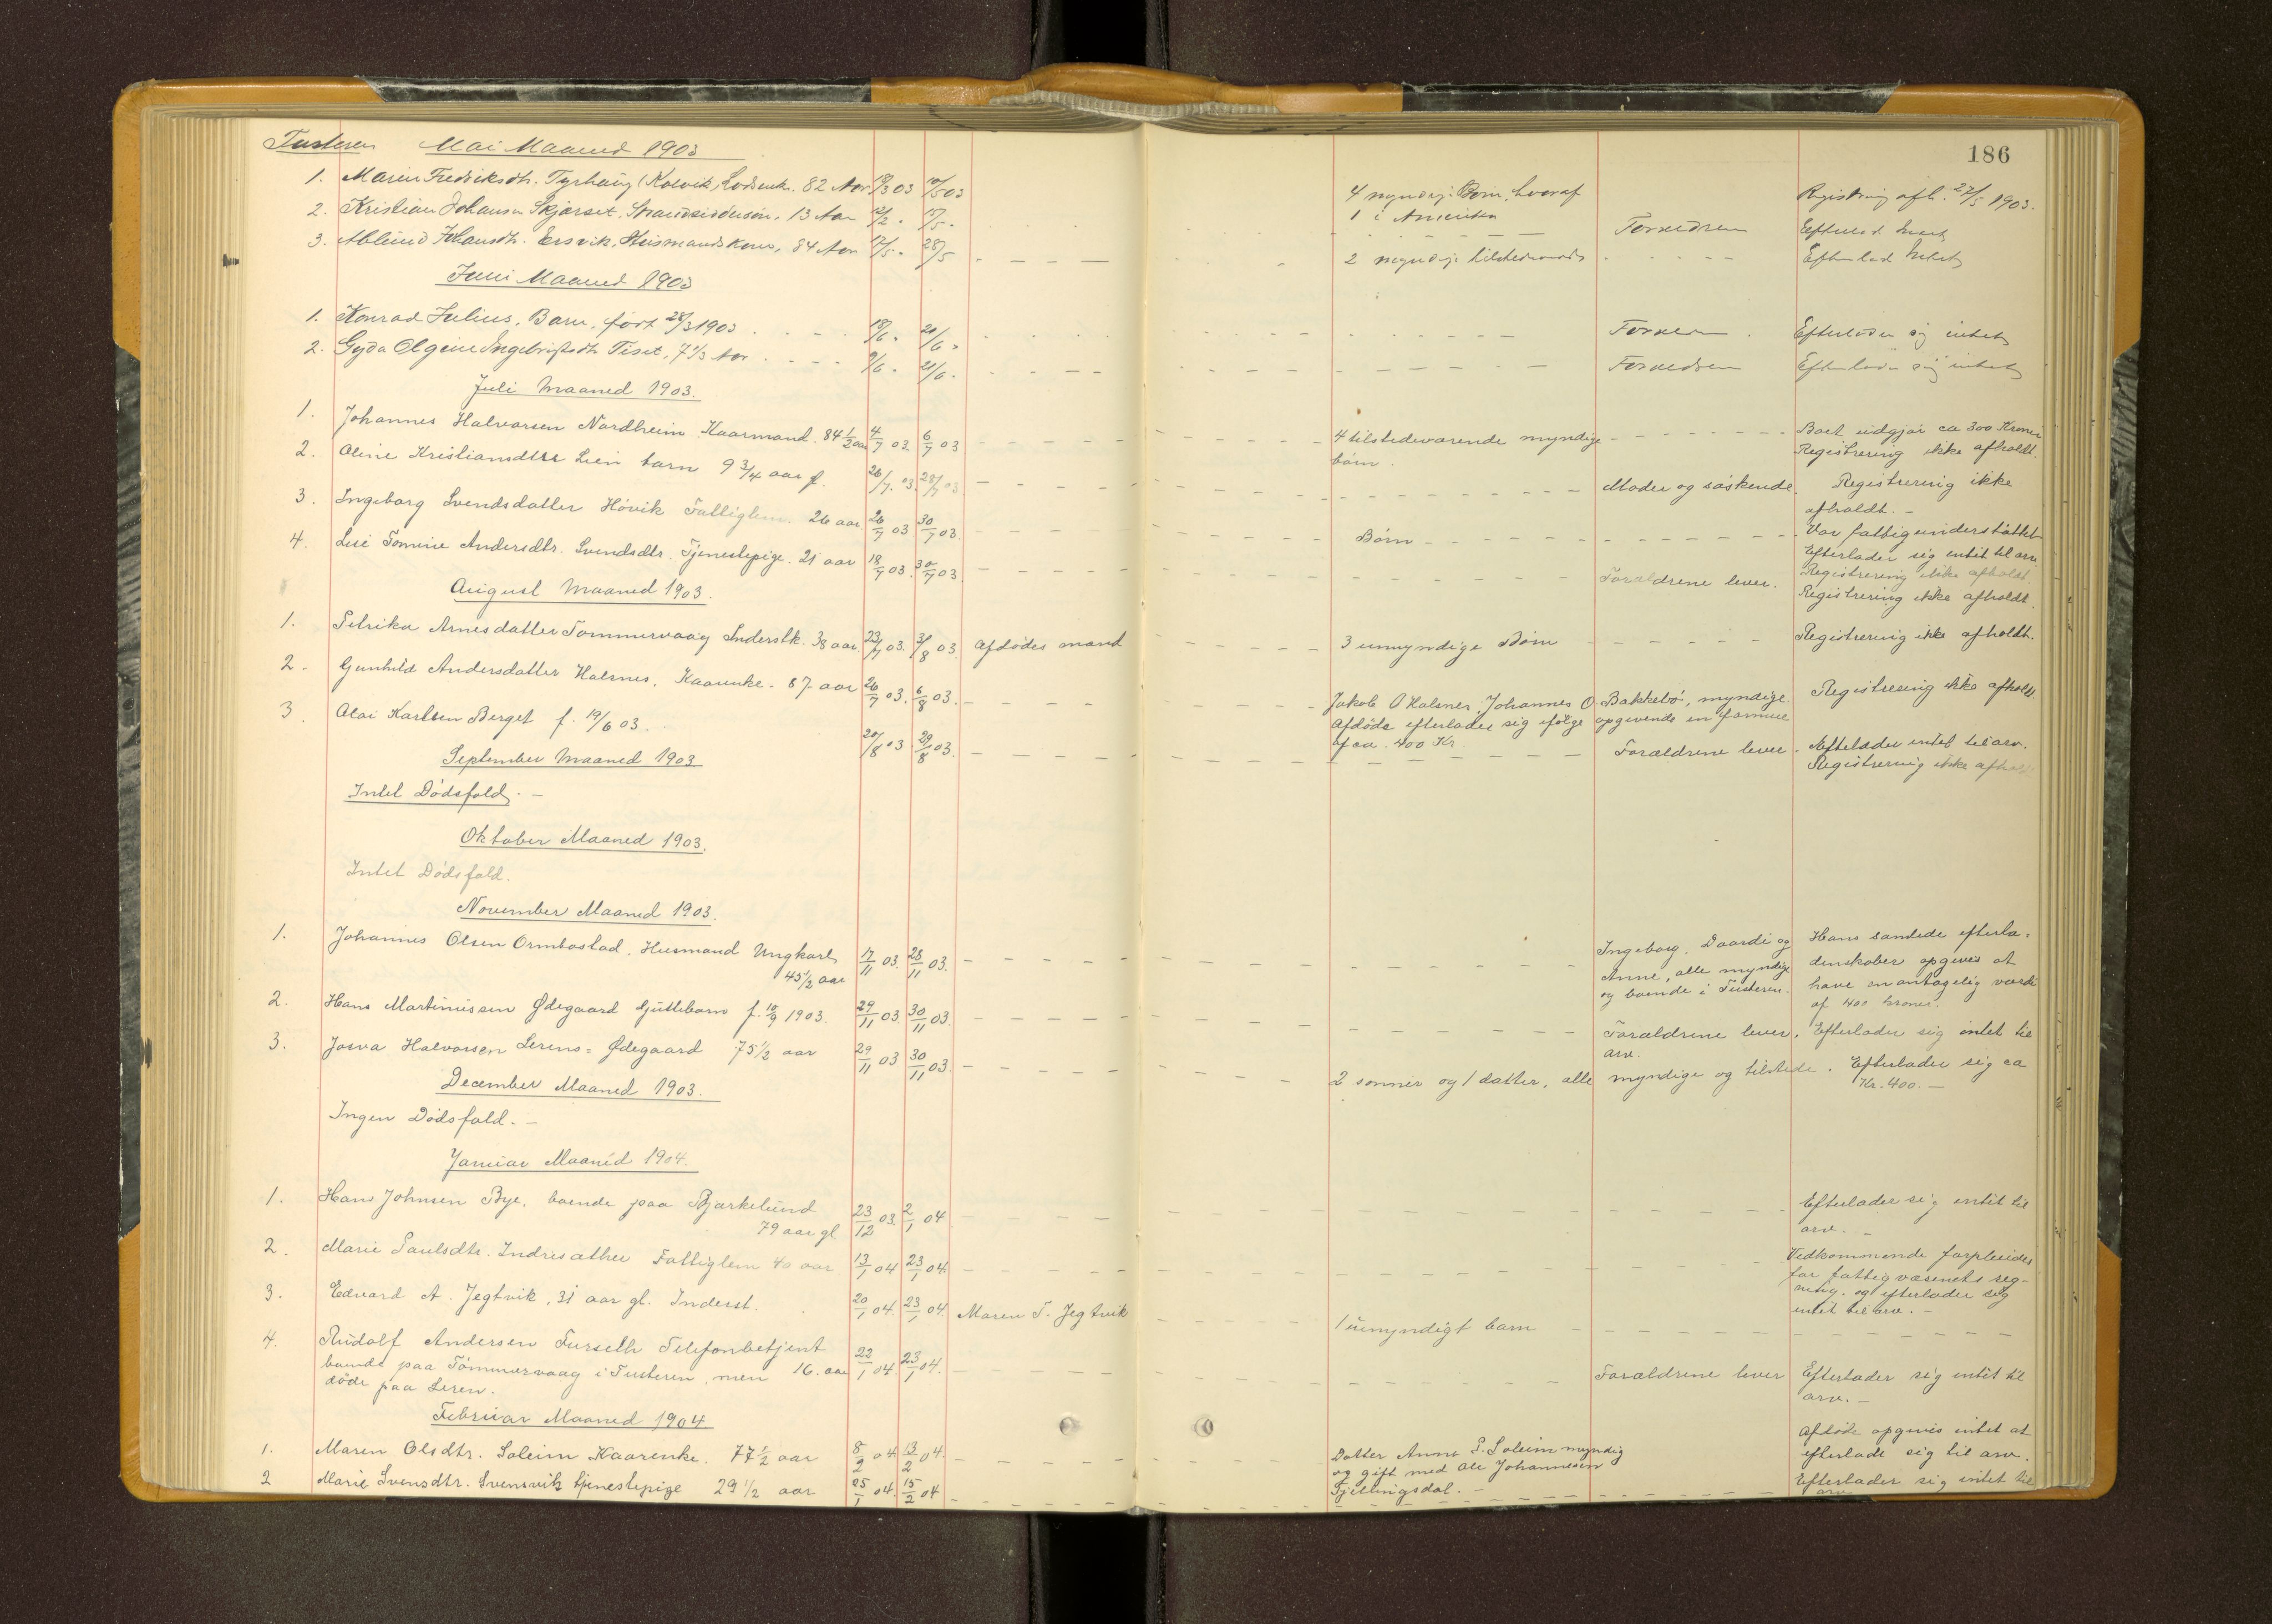 186
Tusteren Mai Maaned 1903
1. Maren Fredriksdtr. Tyrhaug (Kolvik) Lodsenk. 82 Aar 19/3 03 10/5 03 4 myndige Børn, hvoraf Registring afh. 27/5 1903.
1 i Amerika
2. Kristian Johansen Skjørset, Strandsiddersøn, 13 Aar 12/2 - 15/5 - Forældren Efterlod Intet
3. Ablund Johansdtr. Ersvik, Husmandskone, 84 Aar 17/5 - 28/5 2 myndige tilstedeværende Efterlod Intet
Juni Maaned 1903
1. Konrad Julius, Barn, født 28/3 1903 18/6 - 21/6 - Forældren Efterlader sig intet
2. Gyda Olgine Ingebrigtsdtr Tiset, 7 1/3 Aar 9/6 - 21/6 - Forældren Efterlader sig intet
Juli Maaned 1903.
1. Johannes Halvorsen Nordheim Kaarmand. 84 1/2 aar 4/7 03. 6/7 03 4 tilstedeværende myndige Boet udgjør ca 300 Kroner
børn. Registrering ikke afholdt.
2. Oline Kristiansdtr Lien barn 9 3/4 aar gl. 26/7. 03. 28/7 03 Moder og søskende. Registrering ikke
afholdt. -
3. Ingeborg Svendsdatter Høvik Fattiglem. 26 aar 26/7 03 30/7 03. Børn Var fattigunderstøttet
Efterlader sig intet til arv
Registrering ikke afholdt.
4. Lise Tomine Andersdtr. Svendsdtr. Tjenestepige. 21 aar 18/7 03. 30/7 03 Forældrene lever. Registrering ikke afholdt.
August Maaned 1903.
1. Petrika Arnesdatter Tømmervaag Inderstk. 38 aar 23/7 03. 3/8 03. Afdødes mand 3 umyndige Børn Registrering ikke afholdt.
2. Gunhild Andersdatter Halsnes. Kaarenke. 87 aar 26/7 03. 6/8 03. Jakob O Halsnes, Johannes O. Bakkebø, myndige Registrering ikke afholdt
Afdøde efterlader sig ifølge opgivende en formue
af ca. 400 Kr.
3 Olai Karlsen Berget f. 19/6 03. 20/8 03 29/8 03. Forældrene lever. Efterlader intet til arv.
Registrering ikke afholdt
September Maaned 1903
Intet Dødsfald. -
Oktober Maaned 1903.
Intet Dødsfald.
November Maaned 1903.
1. Johannes Olsen Ormbostad. Husmand Ungkarl 17/11 03. 28/11 03. Ingeborg, Daardi og Hans samlede efterla-
45 1/2 aar Anne, alle myndige denskaber opgives at
og boende i Tusteren. have en antagelig værdi
af 400 kroner.
2. Hans Martinussen Ødegaard Gjuttebarn f. 10/9 1903. 29/11 03. 30/11 03. Forældrene lever. Efterlader sig intet til
arv.
3. Josva Halvorsen Lerens- Ødegaard 75 1/2 aar 29/11 03 30/11 03. 2 sønner og 1 datter, alle myndige og tilstede. Efterlader sig ca
Kr. 400. -
December Maaned 1903.
Ingen Dødsfald. -
Januar Maaned 1904.
1. Hans Johnsen Bye. boende paa Bjørkelund 23/12 03. 2/1 04 Efterlader sig intet til
79 aar gl arv. -
2. Marie Paulsdtr. Indresæther Fattiglem 40 aar 13/1 04 23/1 04. Vedkommende forpleiedes
for fattigvæsenets reg-
ning, og efterlader sig
intet til arv. -
3. Edvard A. Jegtvik, 31 aar gl. Inderst. 20/1 04. 23/1 04. Maren T. Jegtvik 1 umyndigt barn
4. Rudolf Andersen Furseth Telefonbetjent 22/1 04. 23/1 04. Forældrene lever Efterlader sig intet til
boende paa Tømmervaag i Tusteren, men 16. aar arv. -
døde paa Leren.
Februar Maaned 1904
1. Maren Olsdtr. Soleim Kaarenke. 77 1/2 aar 8/2 04 13/2 04. Datter Anne P. Soleim myndig Afdøde opgives intet at
og gift med Ole Johannesen efterlade sig til arv.
Gjellingsdal. -
2 Marie Svensdtr. Svensvik tjenestepige 29 1/2 aar 25/1 04. 15/2 04 Efterlader sig intet til
arv